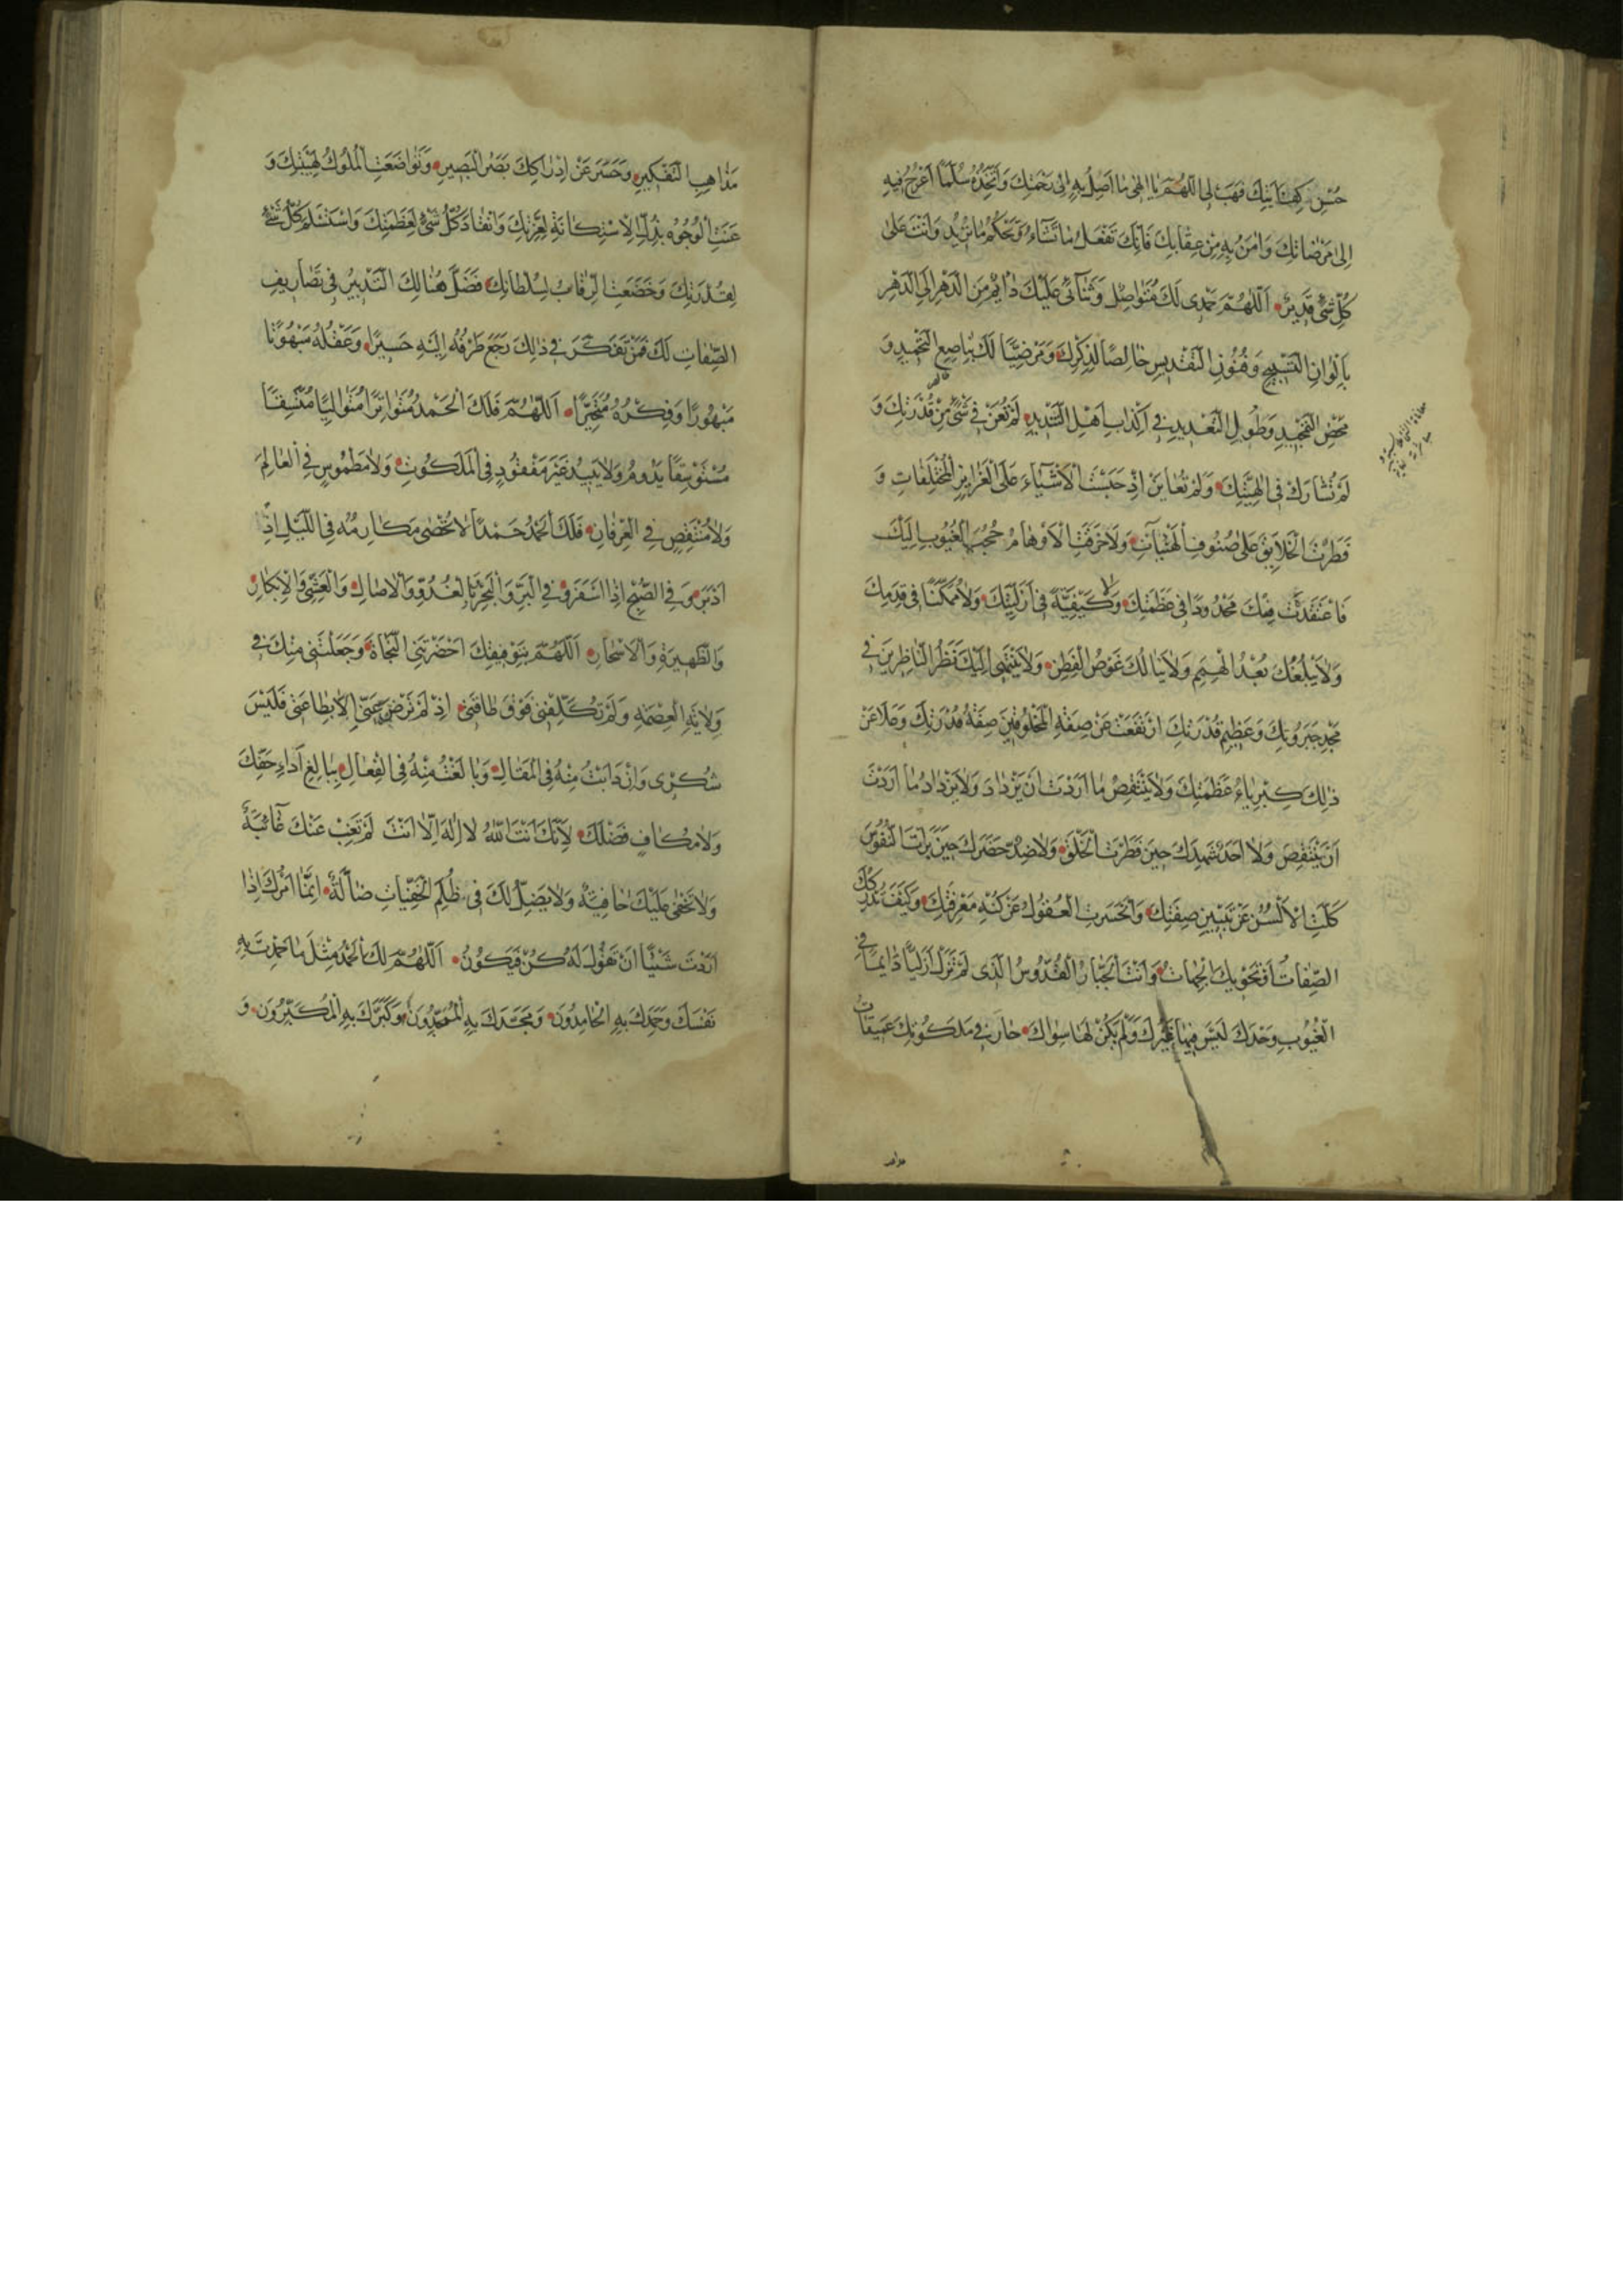 حُسْنِ كِفٰايَتِكَ فَهَبْ لِى اَللّٰهُمَّ يٰا اِلٰهى مٰا اَصِلُ بِهِ اِلىٰ رَحْمَتِكَ وَاَتَّخِذُهُ سُلَّمًا اَعْرُجُ فِيهِ
اِلىٰ مَرْضٰاتِكَ وَاٰمَنُ بِهِ مِنْ عِقٰابِكَ فَاِنَّكَ تَفْعَلُ مٰا تَشٰٓاءُ وَتَحْكُمُ مٰا تُرِيدُ وَاَنْتَ عَلىٰ
كُلِّ شَىْءٍ قَدِيرٌ اَللّٰهُمَّ حَمْدِى لَكَ مُتَوٰاصِلٌ وَثَنٰٓائِى عَلَيْكَ دٰائِمٌ مِنَ الدَّهْرِ اِلَى الدَّهْرِ
بِاَلْوٰانِ التَّسْبِيحِ وَفُنُونِ التَّقْدِيسِ خٰالِصًا لِذِكْرِكَ وَمَرْضِيًّا لَكَ بِنٰاصِعِ التَّحْمِيدِ وَ
مَحْضِ التَّمْجِيدِ وَطُولِ التَّعْدِيدِ فِى اِكْذٰابِ اَهْلِ التَّنْدِيدِ لَمْ تُعَنْ فِى شَىْءٍ مِنْ قُدْرَتِكَ وَ
لَمْ تُشٰارَكْ فِى اِلٰهِيَّتِكَ وَلَمْ تُعٰايَنْ اِذْ حَبَسْتَ الْاَشْيٰٓاءَ عَلَى الْغَرٰايِزِ الْمُخْتَلِفٰاتِ وَ
فَطَرْتَ الْخَلٰايِقَ عَلىٰ صُنُوفِ الْهَيْئٰاتِ وَلٰا خَرَقَتِ الْاَوْهٰامُ حُجُبَ الْغُيُوبِ اِلَيْكَ
فَاعْتَقَدَتْ مِنْكَ مَحْدُودًا فِى عَظَمَتِكَ وَلٰا كَيْفِيَّةً فِى اَزَلِيَّتِكَ وَلٰا مُمْكِنًا فِى قِدَمِكَ
وَلٰا يَبْلُغُكَ بُعْدُ الْهِمَمِ وَلٰا يَنٰالُكَ غَوْصُ الْفِطَنِ وَلٰا يَنْتَهِى اِلَيْكَ نَظَرُ النّٰاظِرِينَ فِى
مَجْدِ جَبَرُوتِكَ وَعَظِيمِ قُدْرَتِكَ ارْتَفَعَتْ عَنْ صِفَةِ الْمَخْلُوقِينَ صِفَةُ قُدْرَتِكَ وَعَلٰا عَنْ
ذٰلِكَ كِبْرِيٰاءُ عَظَمَتِكَ وَلٰا يَنْتَقِصُ مٰا اَرَدْتَ اَنْ يَزْدٰادَ وَلٰا يَزْدٰادُ مٰا اَرَدْتَ
اَنْ يَنْتَقِصَ وَلٰا اَحَدٌ شَهِدَكَ حِينَ فَطَرْتَ الْخَلْقَ وَلٰا ضِدٌّ حَضَرَكَ حِينَ بَرَأْتَ النُّفُوسَ
كَلَّتِ الْاَلْسُنُ عَنْ تَبْيِينِ صِفَتِكَ وَانْحَسَرَتِ الْعُقُولُ عَنْ كُنْهِ مَعْرِفَتِكَ وَكَيْفَ تُدْرِكُكَ
الصِّفٰاتُ اَوْ تَحْوِيكَ الْجِهٰاتُ وَاَنْتَ الْجَبّٰارُ الْقُدُّوسُ الَّذِى لَمْ تَزَلْ اَزَلِيًّا دٰايِمًا فِى
الْغُيُوبِ وَحْدَكَ لَيْسَ فِيهٰا غَيْرُكَ وَلَمْ يَكُنْ لَهٰا سِوٰاكَ حٰارَتْ فِى مَلَكُوتِكَ عَمِيقٰاتُ
مَذٰاهِبِ التَّفْكِيرِ وَحَسَرَ عَنْ اِدْرٰاكِكَ بَصَرُ الْبَصِيرِ وَتَوٰاضَعَتِ الْمُلُوكُ لِهَيْبَتِكَ وَ
عَنَتِ الْوُجُوهُ بِذُلِّ الْاِسْتِكٰانَةِ لِعِزَّتِكَ وَانْقٰادَ كُلُّ شَىْءٍ لِعَظَمَتِكَ وَاسْتَسْلَمَ كُلُّ شَىْءٍ
لِقُدْرَتِكَ وَخَضَعَتِ الرِّقٰابُ لِسُلْطٰانِكَ فَضَلَّ هُنٰالِكَ التَّدْبِيرُ فِى تَصٰارِيفِ
الصِّفٰاتِ لَكَ فَمَنْ تَفَكَّرَ فِى ذٰلِكَ رَجَعَ طَرْفُهُ اِلَيْهِ حَسِيرًا وَعَقْلُهُ مَبْهُوتًا
مَبْهُورًا وَفِكْرُهُ مُتَحَيِّرًا اَللّٰهُمَّ فَلَكَ الْحَمْدُ مُتَوٰاتِرًا مُتَوٰالِيًا مُتَّسِقًا
مُسْتَوْسِقًا يَدُومُ وَلٰا يَبِيدُ غَيْرَ مَفْقُودٍ فِى الْمَلَكُوتِ وَلٰا مَطْمُوسٍ فِى الْعٰالَمِ
وَلٰا مُنْتَقِصٍ فِى الْعِرْفٰانِ فَلَكَ الْحَمْدُ حَمْدًا لٰا تُحْصىٰ مَكٰارِمُهُ فِى اللَّيْلِ اِذْ
اَدْبَرَ وَفِى الصُّبْحِ اِذٰا اَسْفَرَ وَفِى الْبَرِّ وَالْبَحْرِ بِالْغُدُوِّ وَالْاٰصٰالِ وَالْعَشِىِّ وَالْاِبْكٰارِ
وَالظَّهِيرَةِ وَالْاَسْحٰارِ اَللّٰهُمَّ بِتَوْفِيقِكَ اَحْضَرْتَنِى النَّجٰاةَ وَجَعَلْتَنِى مِنْكَ فِى
وِلٰايَةِ الْعِصْمَةِ وَلَمْ تُكَلِّفْنِى فَوْقَ طٰاقَتِى اِذْ لَمْ تَرْضَ عَنِّى اِلّٰا بِطٰاعَتِى فَلَيْسَ
شُكْرِى وَاِنْ دَأَبْتُ مِنْهُ فِى الْمَقٰالِ وَبٰالَغْتُ مِنْهُ فِى الْفِعٰالِ بِبٰالِغِ اَدٰاءِ حَقِّكَ
وَلٰا مُكٰافٍ فَضْلَكَ لِاَنَّكَ اَنْتَ اللّٰهُ لٰا اِلٰهَ اِلّٰا اَنْتَ لَمْ تَغِبْ عَنْكَ غٰآئِبَةٌ
وَلٰا تَخْفىٰ عَلَيْكَ خٰافِيَةٌ وَلٰا يَضِلُّ لَكَ فِى ظُلَمِ الْخَفِيّٰاتِ ضٰآلَّةٌ اِنَّمٰا اَمْرُكَ اِذٰا
اَرَدْتَ شَيْئًا اَنْ تَقُولَ لَهُ كُنْ فَيَكُونُ اَللّٰهُمَّ لَكَ الْحَمْدُ مِثْلَ مٰا حَمِدْتَ بِهِ
نَفْسَكَ وَحَمِدَكَ بِهِ الْحٰامِدُونَ وَمَجَّدَكَ بِهِ الْمُمَجِّدُونَ وَكَبَّرَكَ بِهِ الْمُكَبِّرُونَ وَ